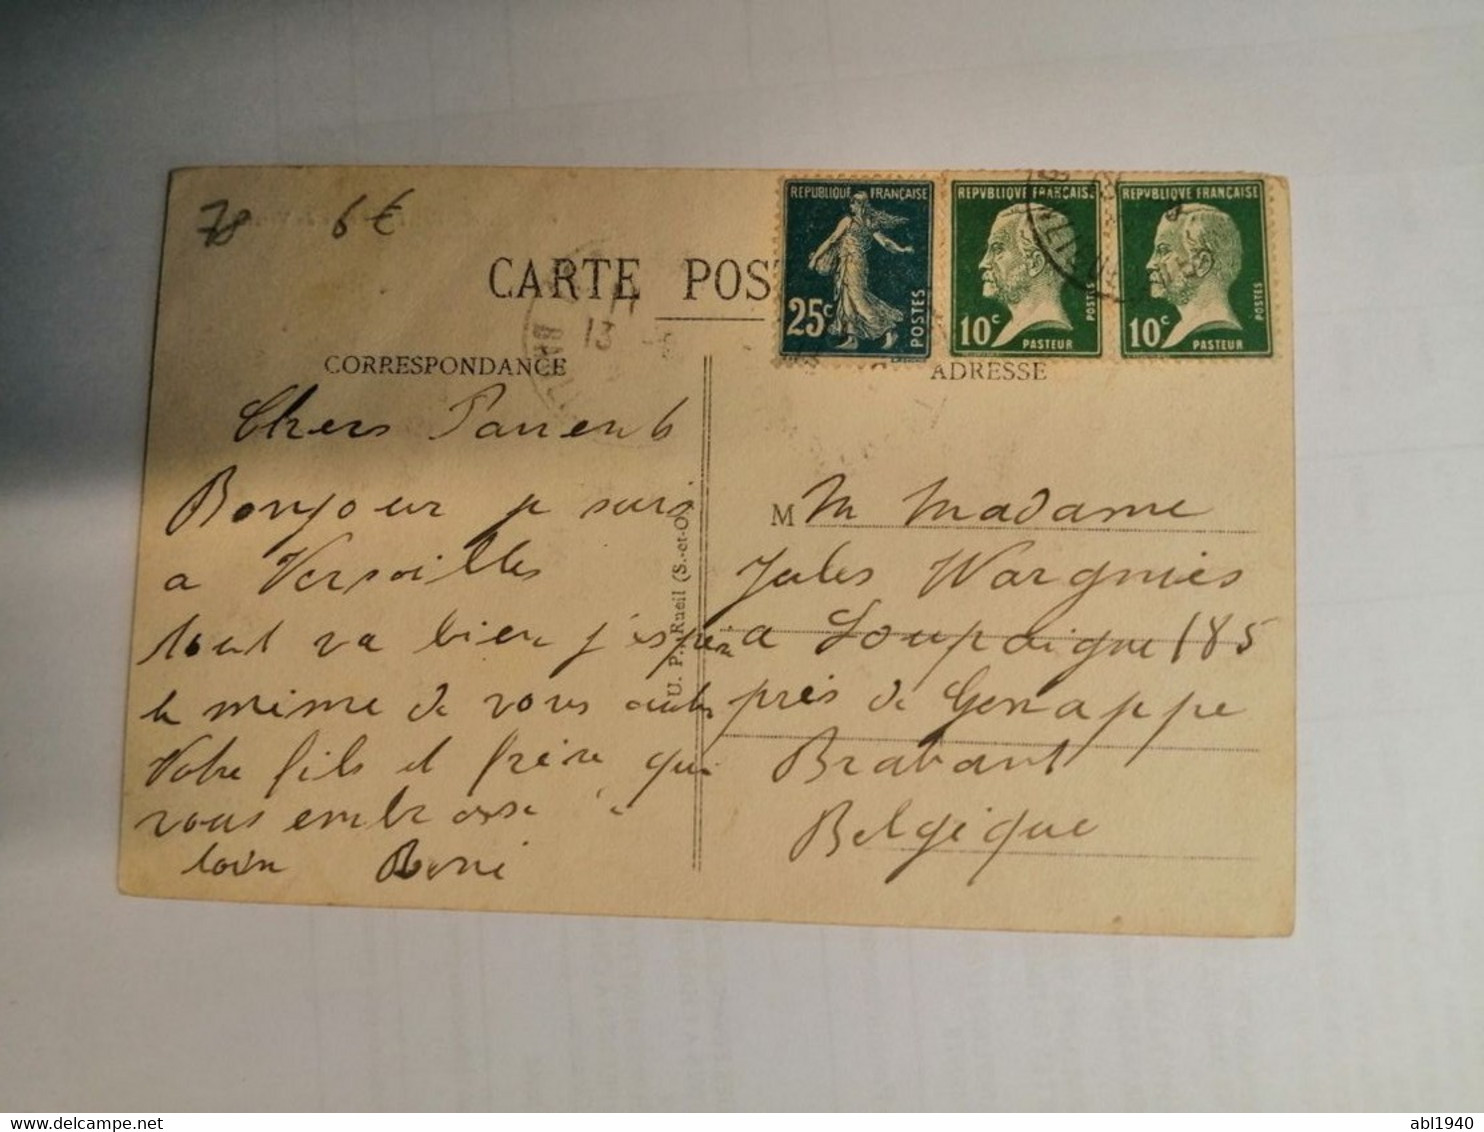 78 6€
CARTE POST
REPUBLIQUE FRANÇAISE
25c
POSTES
REPVBLIQVE FRANÇAISE
10c
POSTES
PASTEUR
REPVBLIQVE FRANÇAISE
10c
POSTES
PASTEUR
13
CORRESPONDANCE
ADRESSE
Chers Parrents
Bonjour je suis
a Versailles
tout va bien j'espère
le même de vous autre
Votre fils et frère qui
vous embrasse
loin René
U. P., Rueil (S.-et-O.)
M M Madame
Jules Wargnies
a Loupoigne 185
près de Genappe
Brabant
Belgique
delcampe.net
abl1940